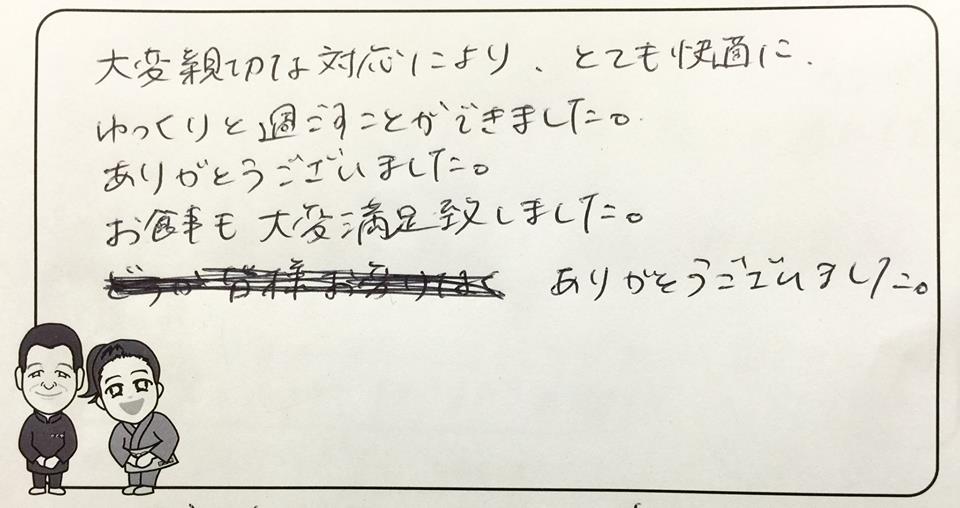 大変親切な対応により、とても快適に、
ゆっくりと過ごすことができました。
ありがとうございました。
お食事も大変満足致しました。
ありがとうございました。